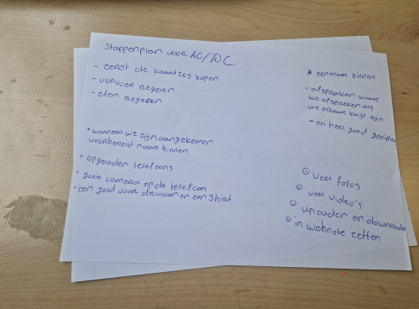 Stappenplan voor AC/DC
- eerst de kaartjes kopen
- vervoer regelen
- eten regelen
• wanneer we zijn aangekomen
voorbereid naar binnen
• opgeladen telefoons
• goie camera op de telefoon
• een goed voor drinken en een shirt
> eenmaal binnen
- afspraken waar
we afspreken als
we elkaar kwijt zijn
- en heel goed
○ veel fotos
○ veel video's
○ uploaden en downloaden
○ in website zetten